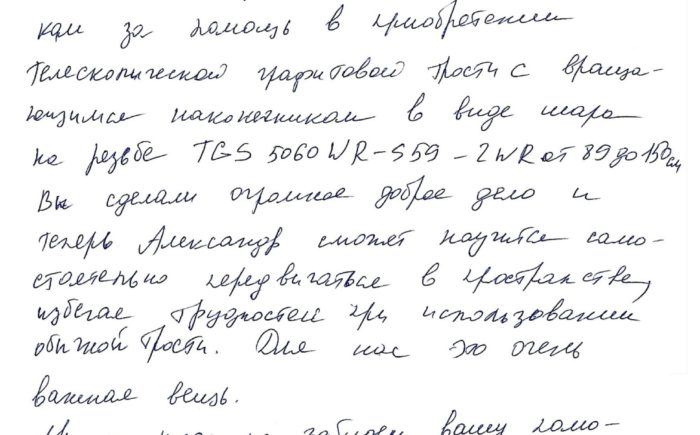 кам за помощь в приобретении
телескопической графитовой трости с враща-
ющимся наконечником в виде шара
на резьбе TGS 5060 WR-S59-2WR от 89 до 150 см
Вы сделали огромное доброе дело и
теперь Александр сможет научится само-
стоятельно передвигаться в пространстве,
избегая трудностей при использовании
обычной трости. Для нас это очень
важная вещь.
вашу помо-